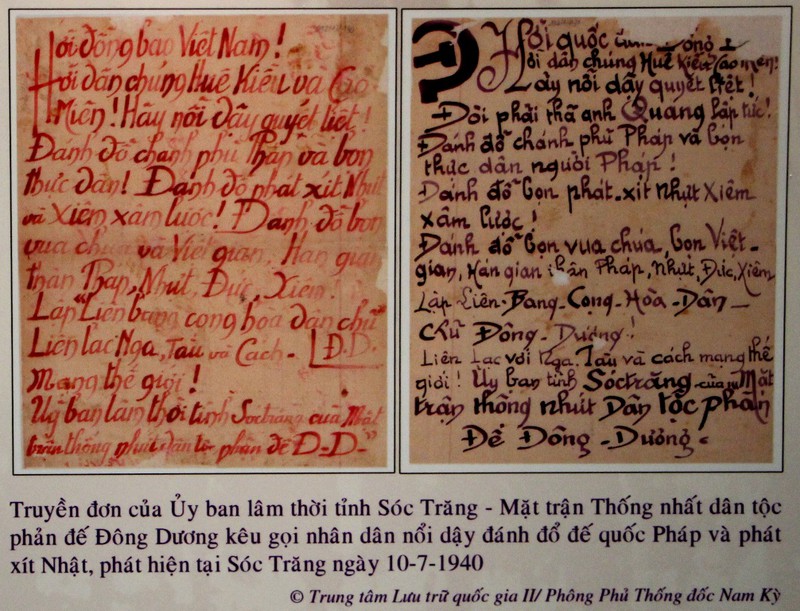 Hỡi đồng bào Việt Nam!
Hỡi dân chúng Huê Kiều và Cao
Miên! Hãy nổi dậy quyết liệt!
Đánh đổ chánh phủ Pháp và bọn
thực dân! Đánh đổ phát xít Nhựt
và Xiêm xâm lược! Đánh đổ bọn
vua chúa và Việt gian, Hán gian
thân Pháp, Nhựt, Đức, Xiêm!
Lập "Liên bang cộng hòa dân chủ
Liên lạc Nga, Tàu và Cách- Đ.D.
Mạng thế giới!
Uỷ ban lâm thời tỉnh Sóctrăng của Mặt
trận thống nhứt dân tộc phản đế Đ-D-"
Hỡi quốc
Hỡi dân chúng Huê Kiều Cao miên!
Hãy nổi dậy quyết liệt!
Đòi phải thả anh Quang lập tức!
Đánh đổ chánh phủ Pháp và bọn
thực dân người Pháp!
Đánh đổ bọn phát-xít nhựt Xiêm
xâm lược!
Đánh đổ bọn vua chúa, bọn Việt-
gian, Hán gian thân Pháp, Nhựt, Đức, Xiêm
Lập Liên-Bang-Cộng-Hòa-Dân-
Chủ Đông-Dương!
Liên Lạc với Nga. Tàu và cách mạng thế
giới! Ủy ban tỉnh Sóctrăng của Mặt
trận thống nhứt Dân tộc phản
Đế Đông-Dương.
Truyền đơn của Ủy ban lâm thời tỉnh Sóc Trăng - Mặt trận Thống nhất dân tộc
phản đế Đông Dương kêu gọi nhân dân nổi dậy đánh đổ đế quốc Pháp và phát
xít Nhật, phát hiện tại Sóc Trăng ngày 10-7-1940
© Trung tâm Lưu trữ quốc gia II/ Phông Phủ Thống đốc Nam Kỳ